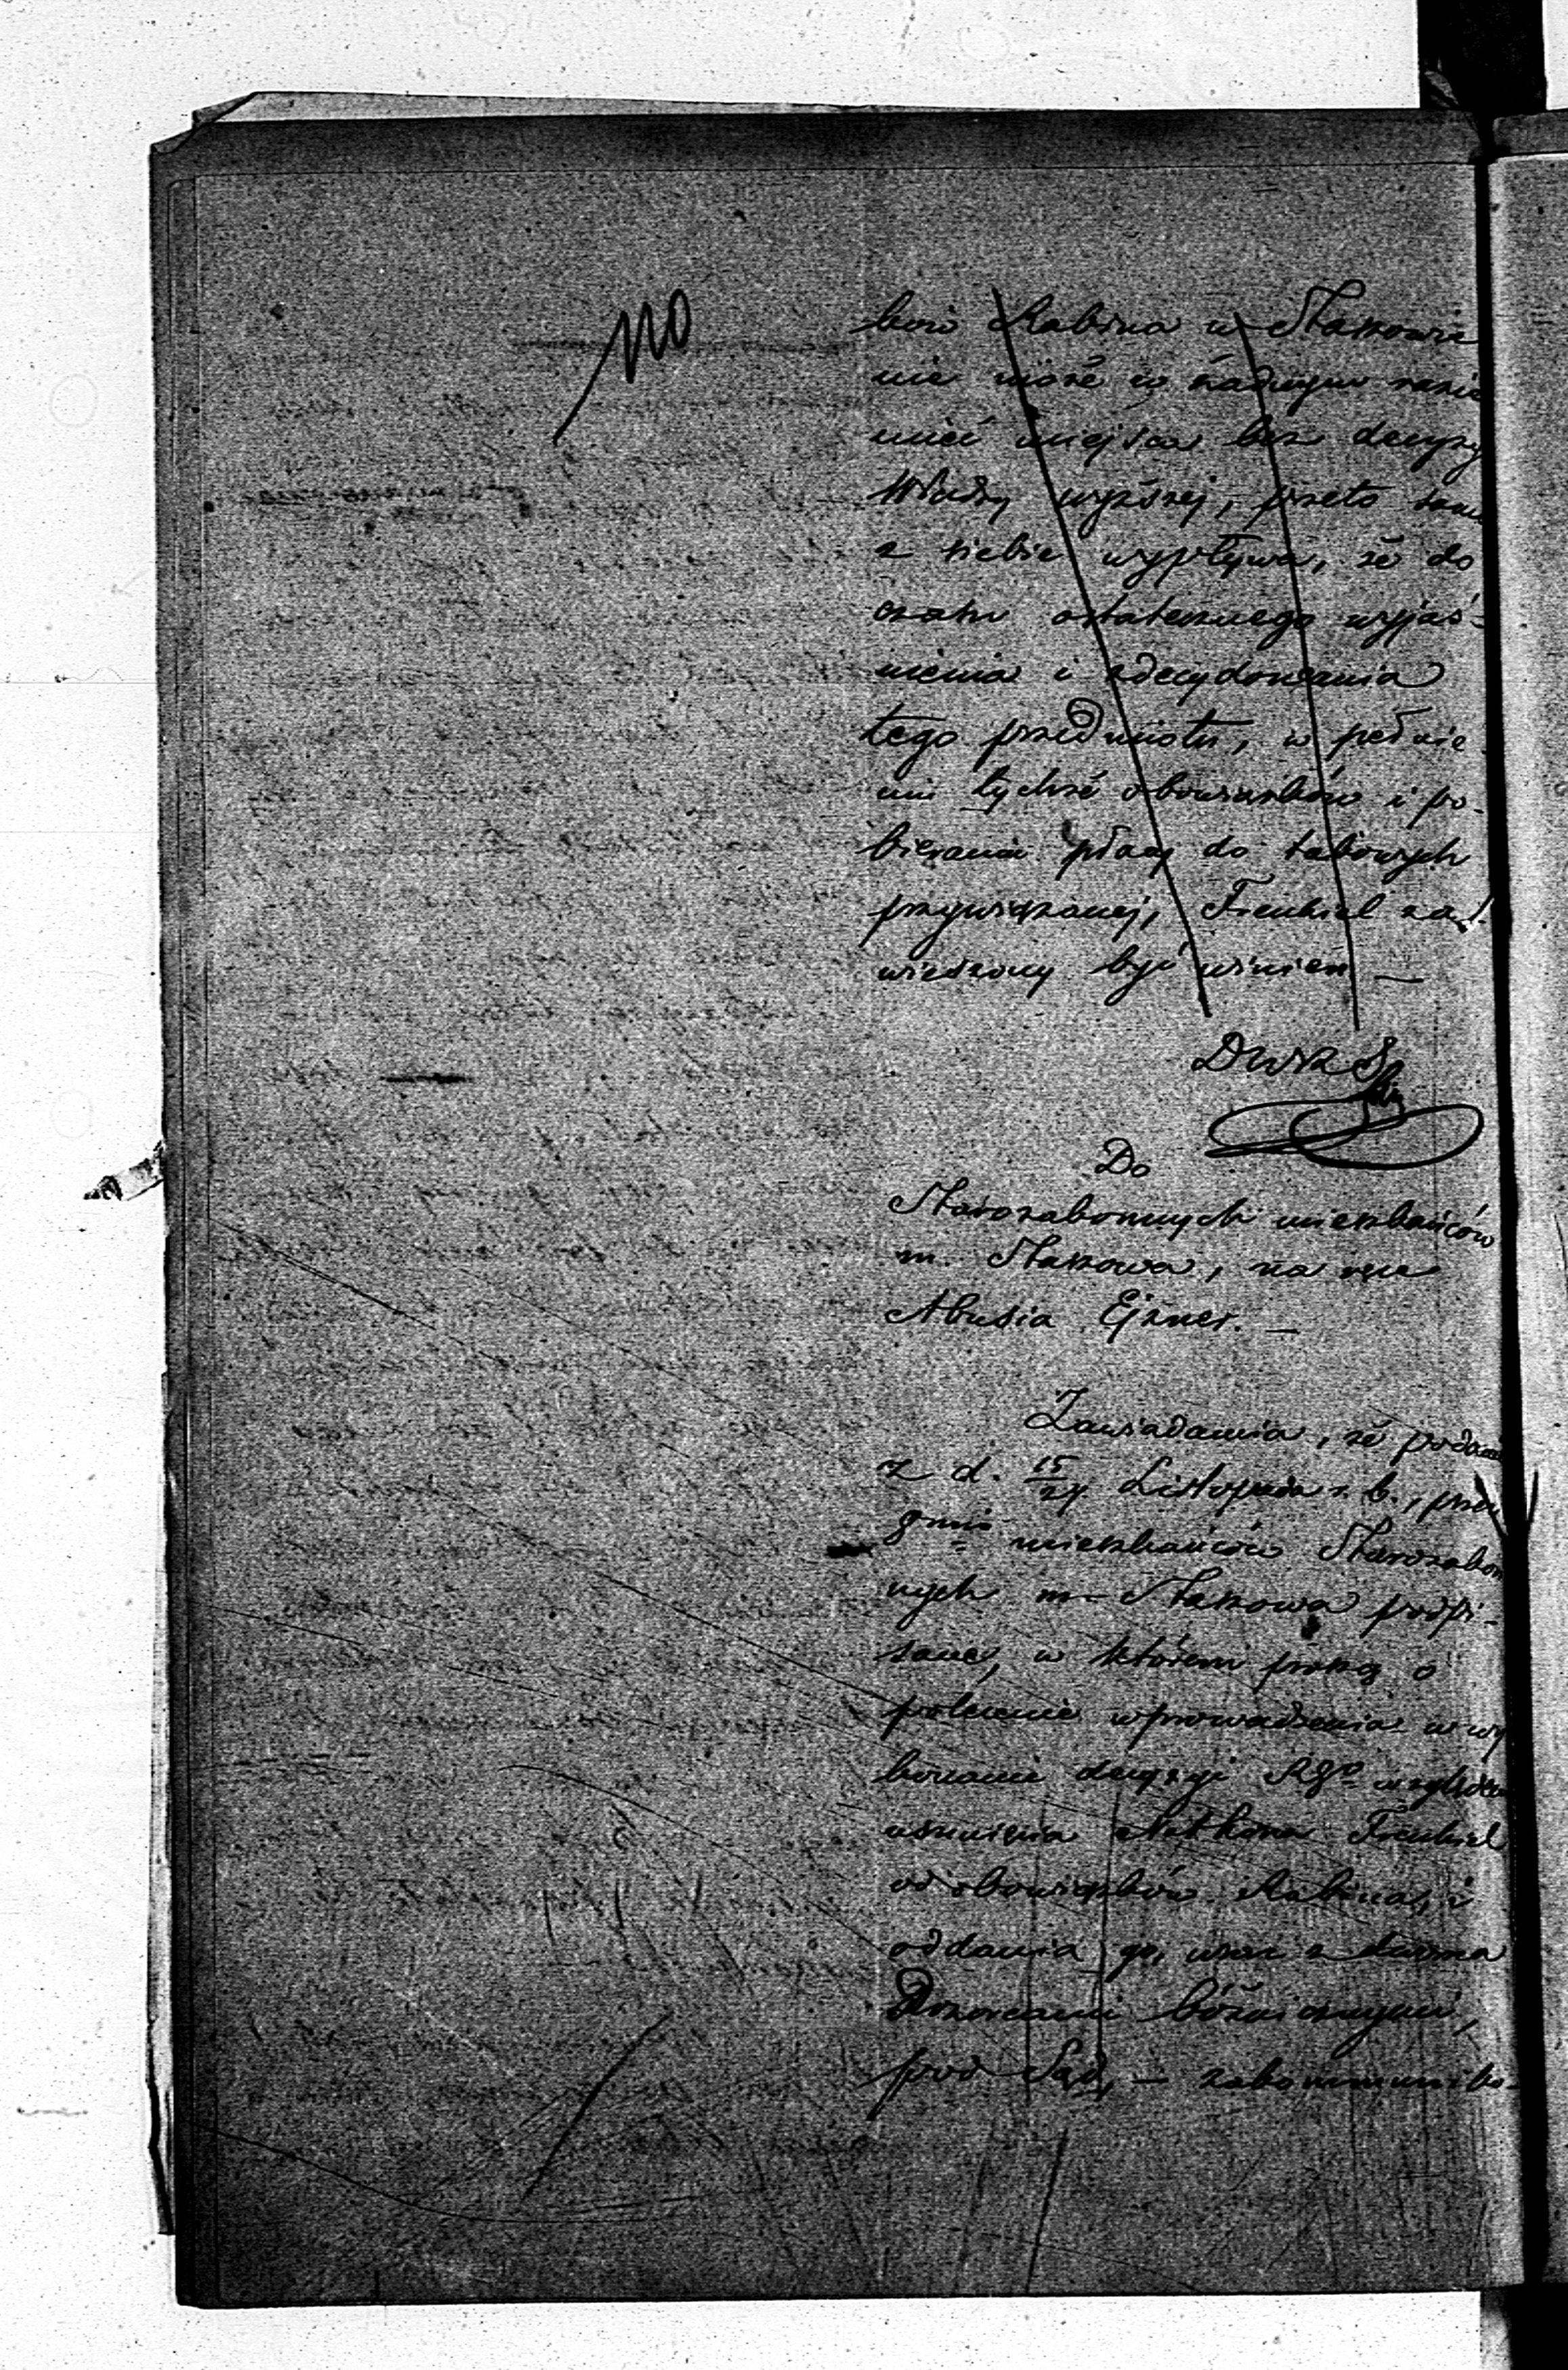 110
bora Rabina w Staszowie
nie może w żadnym razie
mieć miejsca bez decyzyi
Władzy wyższej, przeto samo
z siebie wypływa, że do
czasu ostatecznego wyjaś-
nienia i zdecydowania
tego przedmiotu, w pełnie-
niu tychże obowiązków i po-
bieraniu płacy do takowych
przywiązanej, Frenkiel za-
wieszony być winien —
Do
Starozakonnych mieszkańców
m. Staszowa, na ręce
Abusia Ejzner. —
Zawiadamia, że podanie
z d. 15/27 Listopada r. b., przez
mieszkańców Starozakon
nych m. Staszowa podpi-
sane, w którem proszą o
polecenie wprowadzenia w wy
konanie decyzyi Rgo względem
usunięcia Frenkiel
od obowiązków Rabina, i
oddania go, wraz z dwoma
Dozorcami bóżniczymi,
pod Sąd, — zakommuniko-